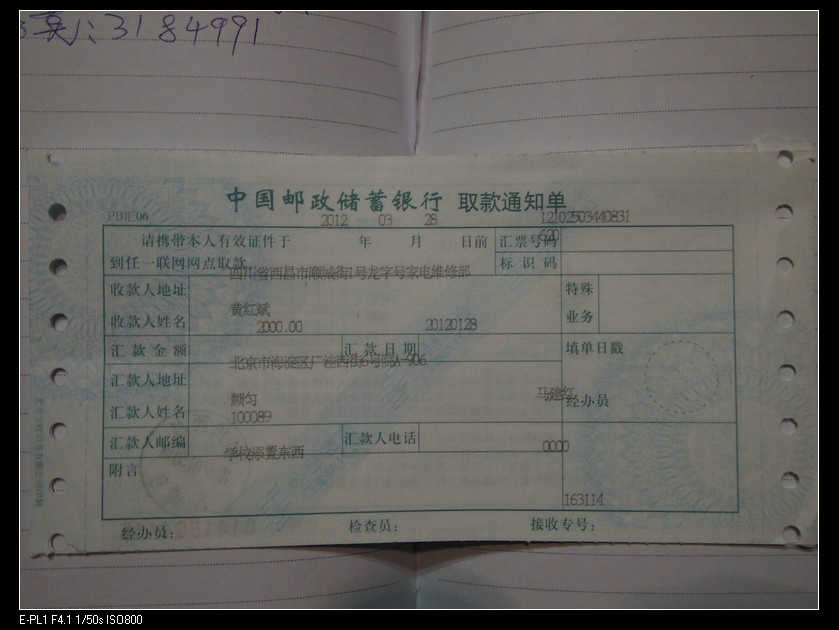 3184991
中国邮政储蓄银行 取款通知单
PDJE06 2012 03 28 12102503440831
请携带本人有效证件于 年 月 日前 汇票号码 620
到任一联网网点取款 标识码
四川省西昌市顺城街1号龙字号家电维修部
收款人地址 特殊
黄红斌
收款人姓名 业务
2000.00 20120128
汇款金额 汇款日期 填单日戳
北京市海淀区广洼西街6号院A-906
汇款人地址
顾匀 马建红
汇款人姓名 经办员
100089
汇款人邮编 汇款人电话 0000
学校添置东西
附言
163114
经办员: 检查员: 接收专号:
E-PL1 F4.1 1/50s ISO800